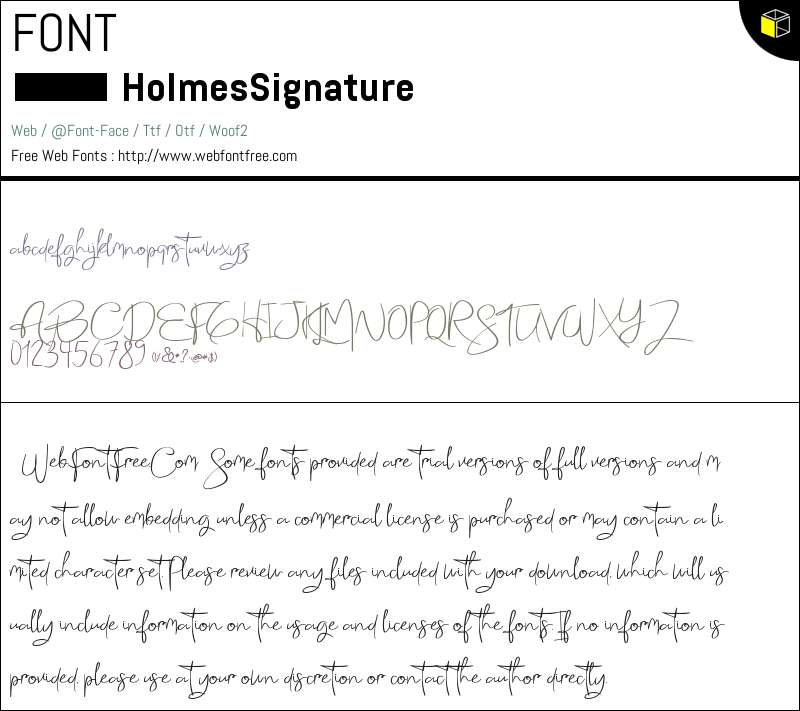 FONT
HolmesSignature
Web / @Font-Face / Ttf / Otf / Woof2
Free Web Fonts : http://www.webfontfree.com
abcdefghijklmnopqrstuvwxyz
ABCDEFGHIJKLMNOPQRSTUVWXYZ
0123456789
WebFontFree.Com Some fonts provided are trial versions of full versions and m
ay not allow embedding unless a commercial license is purchased or may contain a li
mited character set. Please review any files included with your download, which will us
ually include information on the usage and licenses of the fonts. If no information is
provided, please use at your own discretion or contact the author directly.